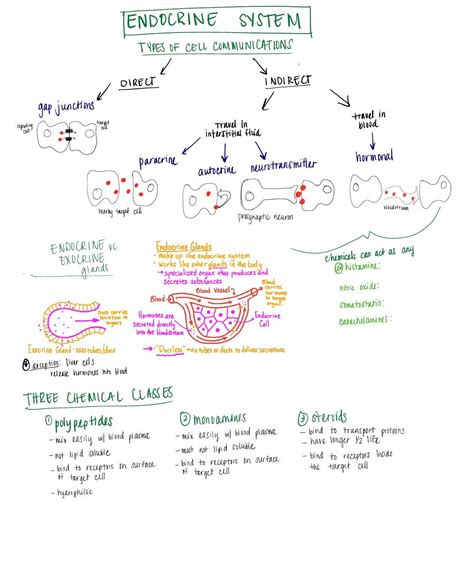 ENDOCRINE SYSTEM
TYPES OF CELL COMMUNICATIONS
DIRECT
INDIRECT
gap junctions
target cell
travel in
interstitial fluid
travel in
blood
paracrine
autocrine
neurotransmitter
hormonal
nearby target cell
presynaptic neuron
bloodstream
chemicals can act as any
histamine:
nitric oxide:
somatostatin:
catecholamines:
ENDOCRINE vs.
EXOCRINE
glands
Duct carries
secretion to
Exocrine Gland-uses tubes/duct
exception: liver cells
release hormones into blood
Endocrine Glands
- make up the endocrine system
- works like other glands in the body
→ specialized organ that produces and
secretes substances
Blood Vessel
Blood
Blood
carries
hormones
Hormones are
secreted directly
into the bloodstream
Endocrine
Cell
"Ductless" → no tubes or ducts to deliver secretions
THREE CHEMICAL CLASSES
① polypeptides
- mix easily w/ blood plasma
- not lipid soluble
- bind to receptors on surface
of target cell
- hydrophilic
② monoamines
- mix easily w/ blood plasma
- most not lipid soluble
- bind to receptors on surface
of target cell
③ steroids
- bind to transport proteins
- have longer 1/2 life
- bind to receptors inside
the target cell